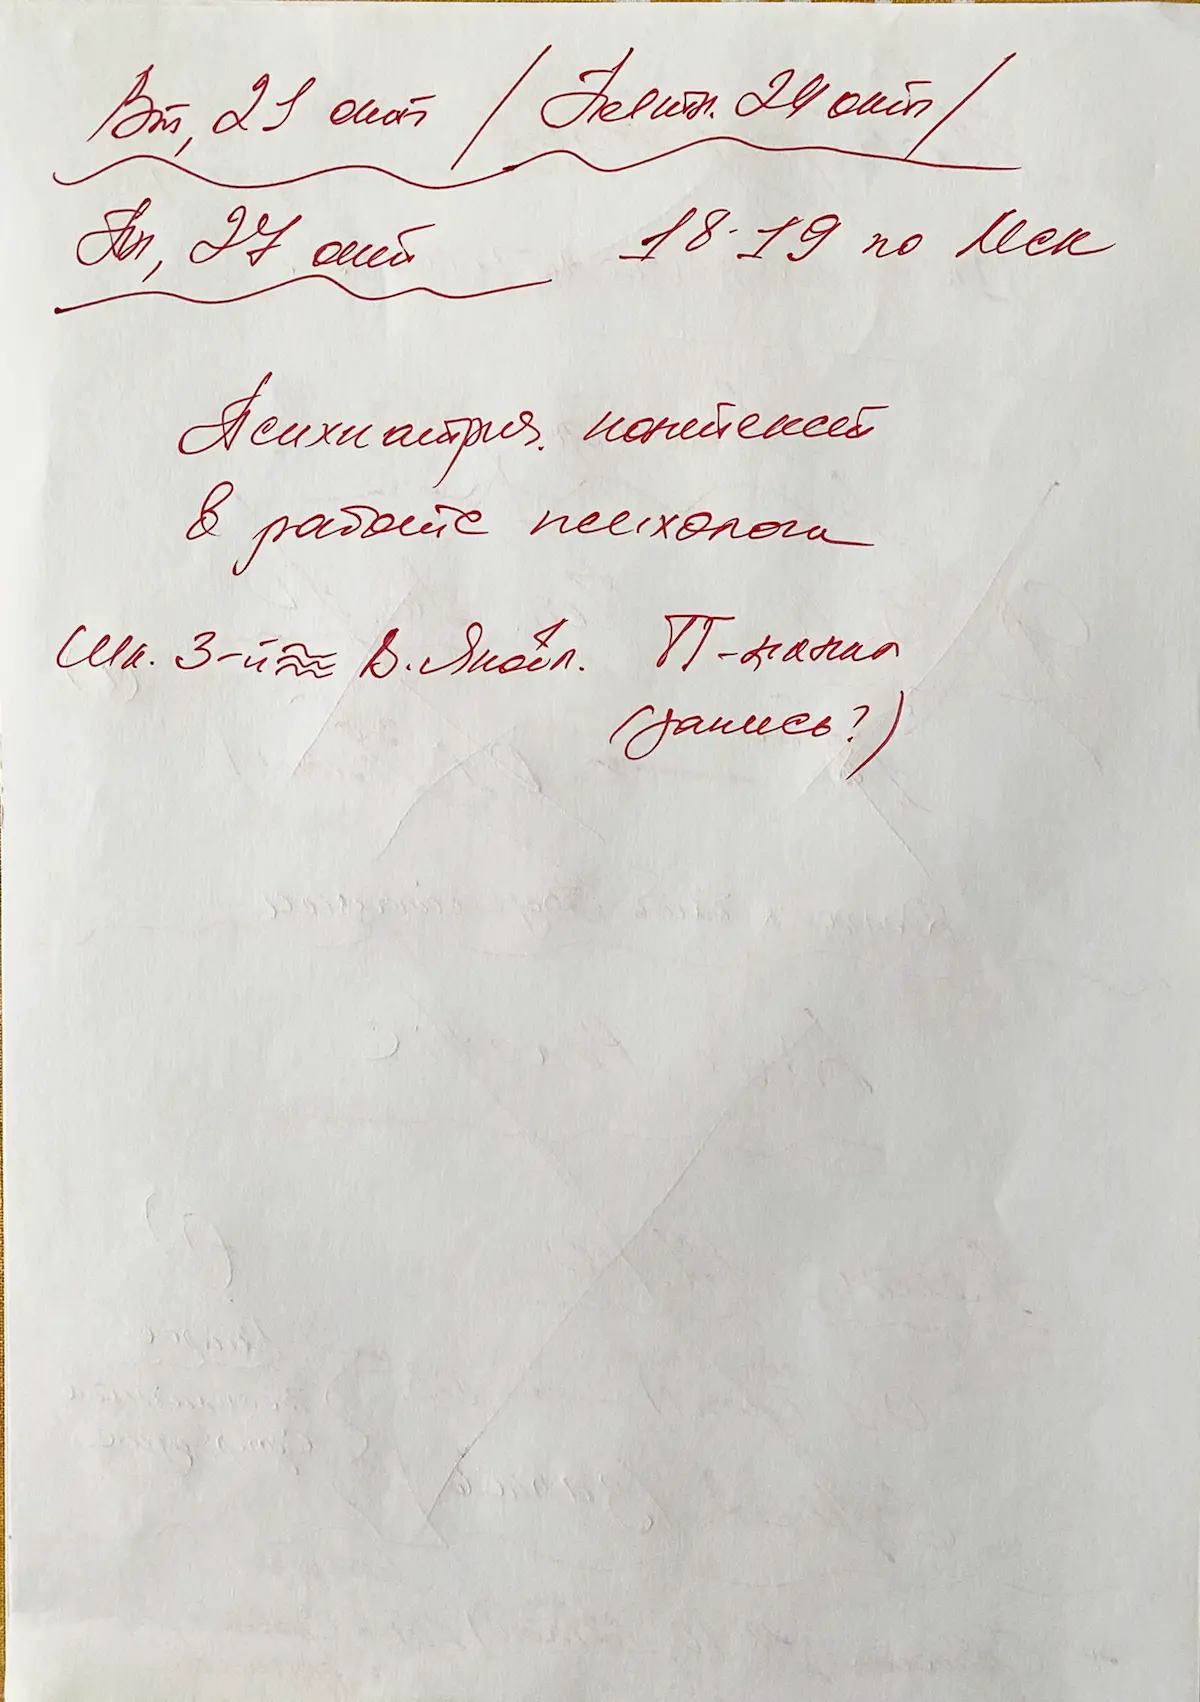 Вт, 21 окт / Пятн. 24 окт /
Пн, 27 окт 18-19 по Мск
Психиатрия. контекст
в работе психолога
Шк. 3-й ≈ В. Яковл. ТГ-канал
(запись?)